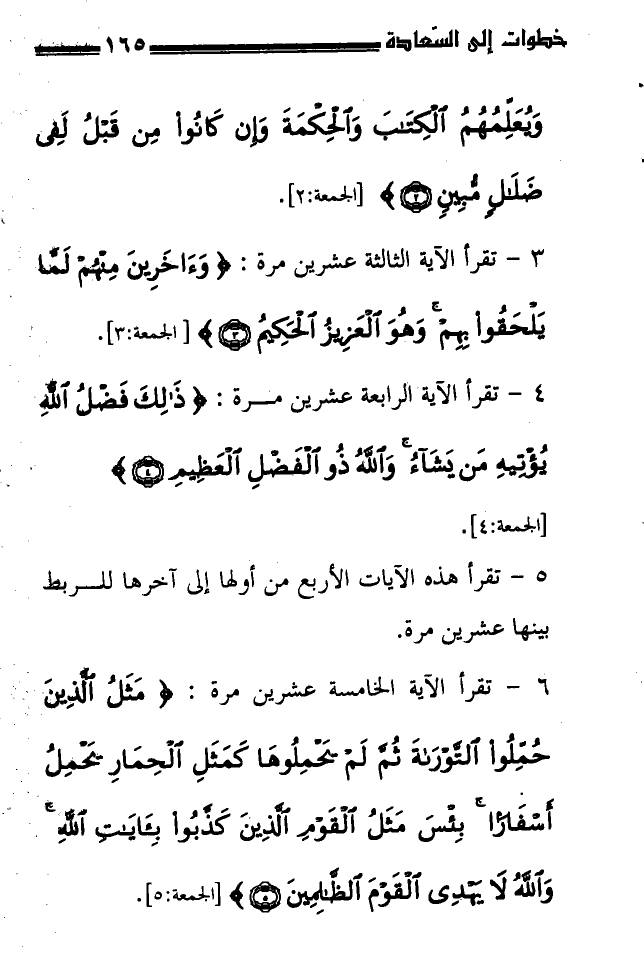 خطوات إلى السّعادة ١٦٥
وَيُعَلِّمُهُمُ ٱلْكِتَـٰبَ وَٱلْحِكْمَةَ وَإِن كَانُوا۟ مِن قَبْلُ لَفِى
ضَلَـٰلٍ مُّبِينٍ ﴿٢﴾ ﴾ [الجمعة:٢].
٣ – تقرأ الآية الثالثة عشرين مرة : ﴿ وَءَاخَرِينَ مِنْهُمْ لَمَّا
يَلْحَقُوا۟ بِهِمْ ۚ وَهُوَ ٱلْعَزِيزُ ٱلْحَكِيمُ ﴿٣﴾ ﴾ [الجمعة:٣].
٤ – تقرأ الآية الرابعة عشرين مـــرة : ﴿ ذَٰلِكَ فَضْلُ ٱللَّهِ
يُؤْتِيهِ مَن يَشَآءُ ۚ وَٱللَّهُ ذُو ٱلْفَضْلِ ٱلْعَظِيمِ ﴿٤﴾ ﴾
[الجمعة:٤].
٥ – تقرأ هذه الآيات الأربع من أولها إلى آخرها للـــربط
بينها عشرين مرة.
٦ – تقرأ الآية الخامسة عشرين مرة : ﴿ مَثَلُ ٱلَّذِينَ
حُمِّلُوا۟ ٱلتَّوْرَىٰةَ ثُمَّ لَمْ يَحْمِلُوهَا كَمَثَلِ ٱلْحِمَارِ يَحْمِلُ
أَسْفَارًۢا ۚ بِئْسَ مَثَلُ ٱلْقَوْمِ ٱلَّذِينَ كَذَّبُوا۟ بِـَٔايَـٰتِ ٱللَّهِ ۚ
وَٱللَّهُ لَا يَهْدِى ٱلْقَوْمَ ٱلظَّـٰلِمِينَ ﴿٥﴾ ﴾ [الجمعة:٥].